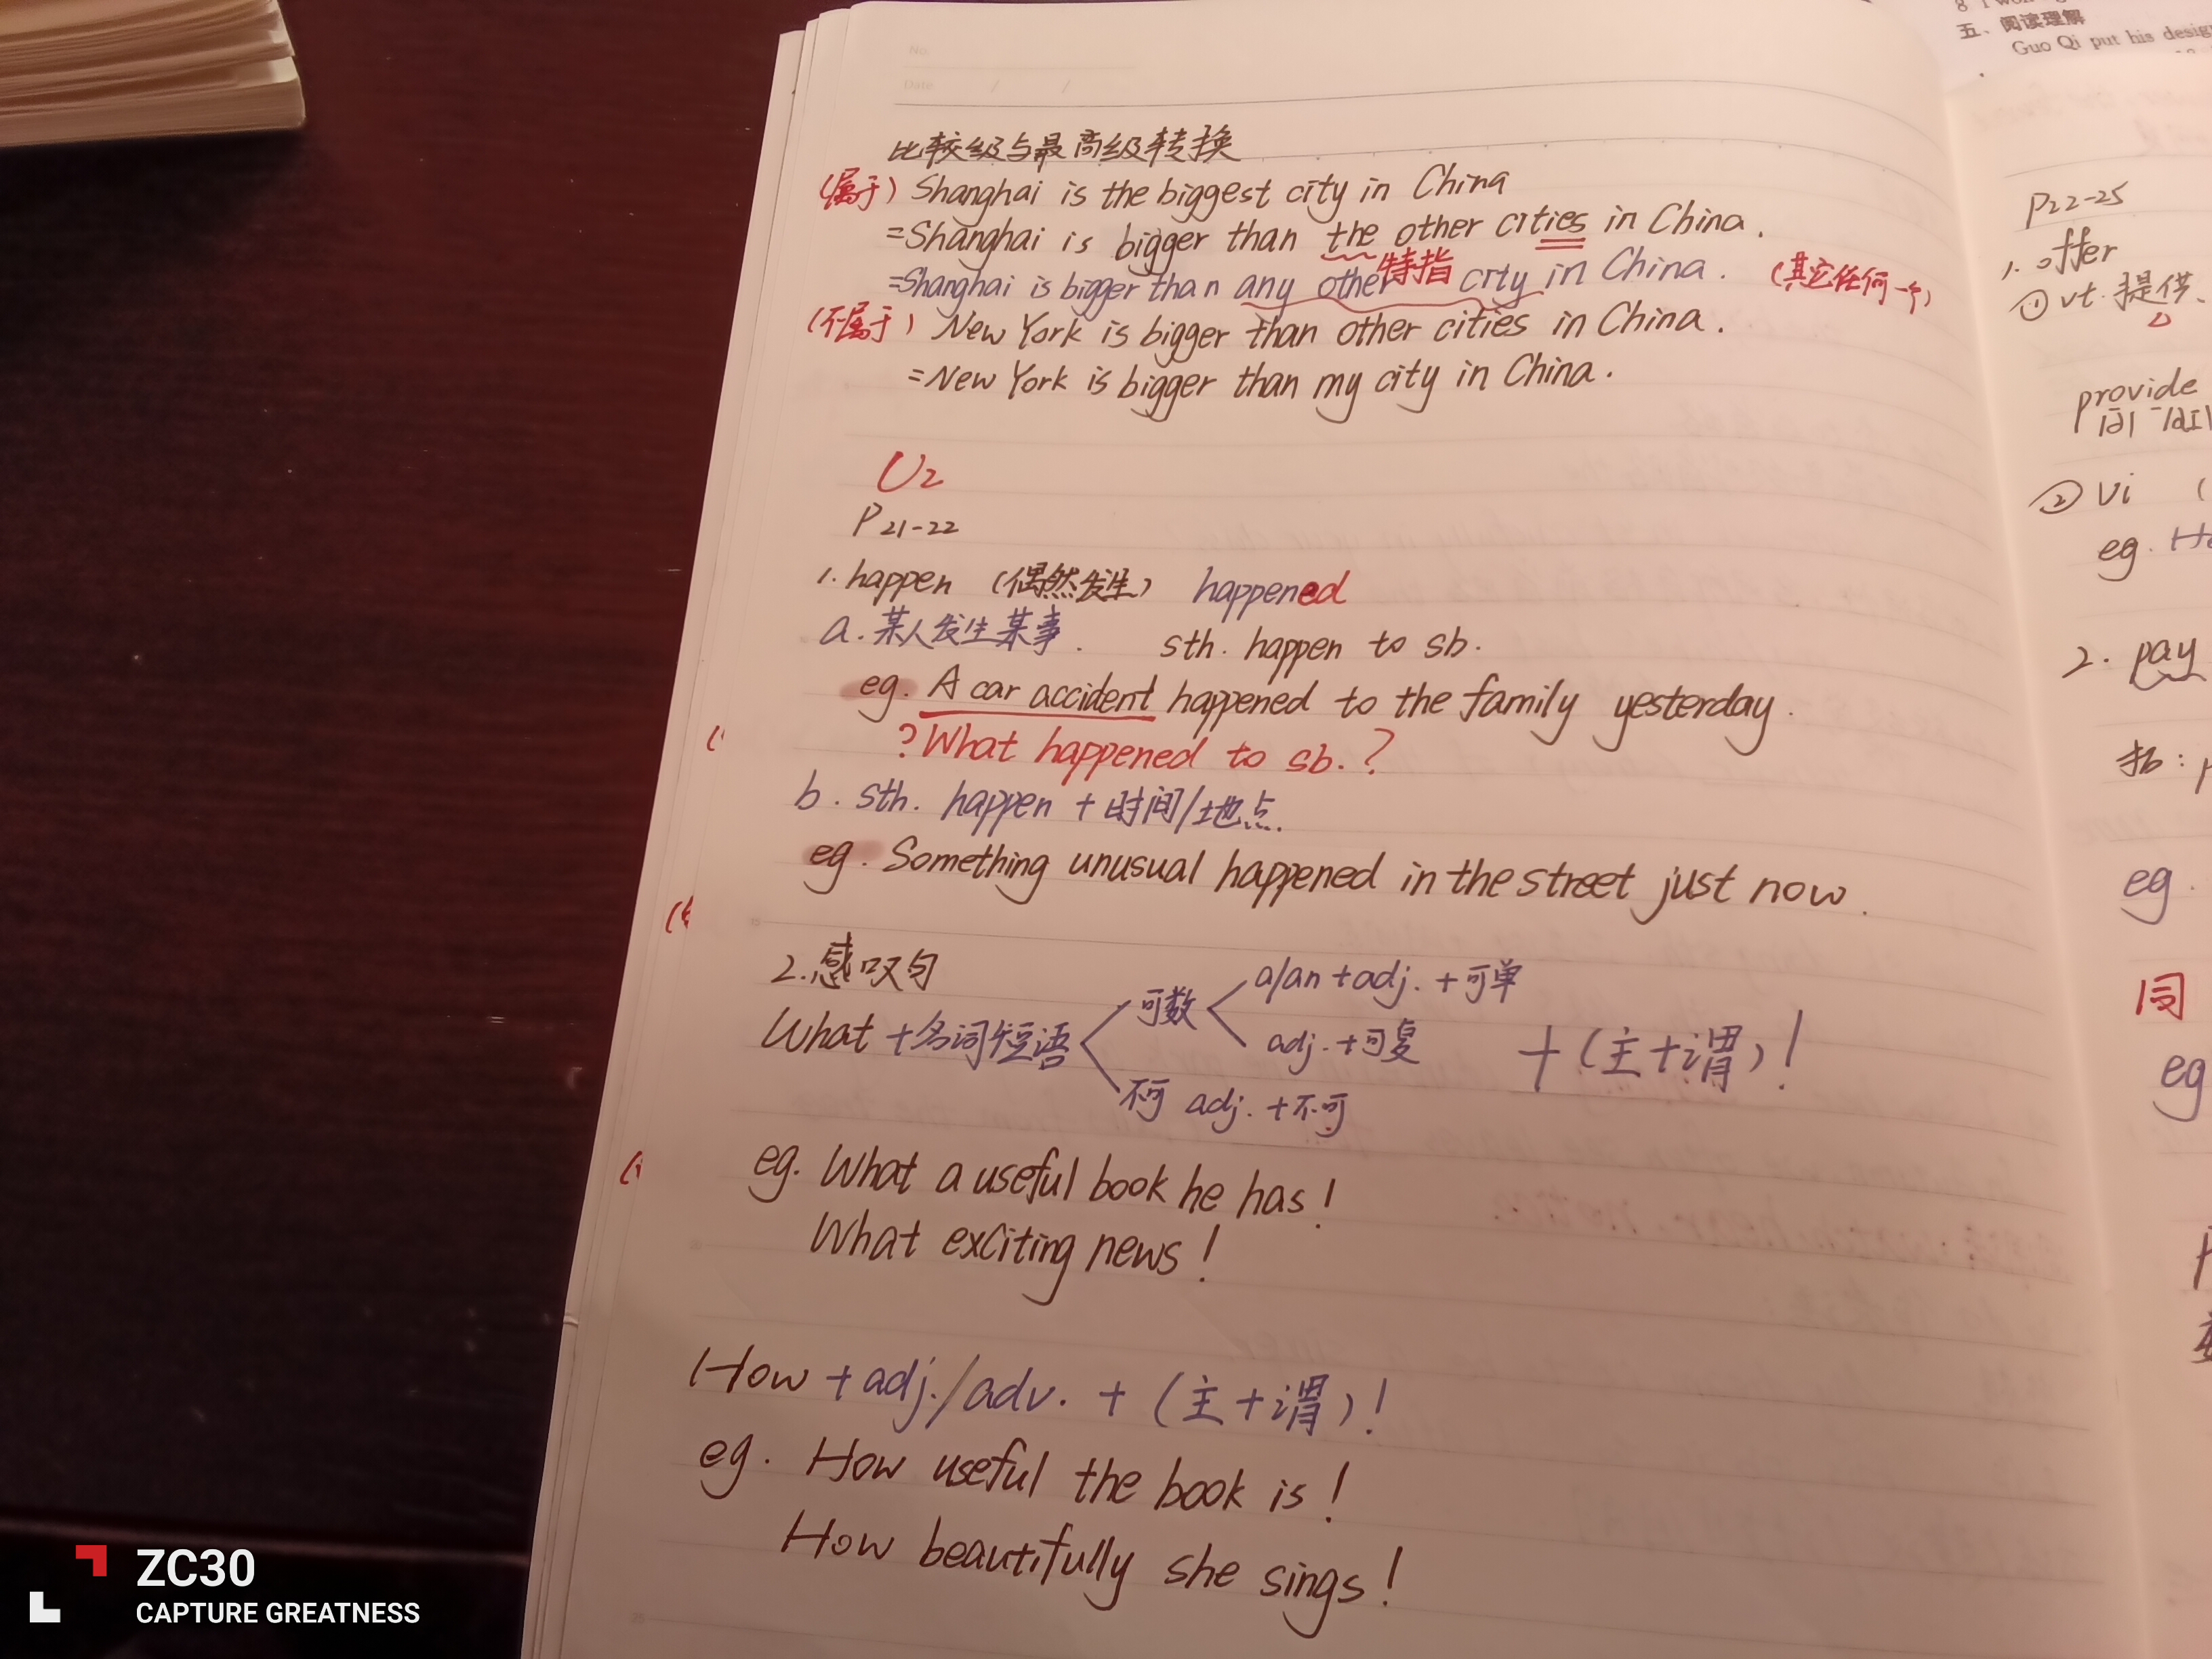 No.
Date / /
比较级与最高级转换
(属于) Shanghai is the biggest city in China
=Shanghai is bigger than the other cities in China.
特指
=Shanghai is bigger than any other city in China. (其它任何一个)
(不属于) New York is bigger than other cities in China.
=New York is bigger than my city in China.
U2
P21-22
1. happen (偶然发生) happened
a. 某人发生某事. sth. happen to sb.
eg. A car accident happened to the family yesterday.
? What happened to sb. ?
b. sth. happen + 时间/地点.
eg. Something unusual happened in the street just now.
2. 感叹句
a/an + adj. + 可单
What + 名词短语 可数 adj. + 可复 + (主+谓)!
不可 adj. + 不可
eg. What a useful book he has!
What exciting news!
How + adj./adv. + (主+谓)!
eg. How useful the book is!
How beautifully she sings!
五、阅读理解
Guo Qi put his
P22-25
1. offer
① vt. 提供、
provide
② vi (
eg.
2. pay
拓:
eg.
同
eg
ZC30
CAPTURE GREATNESS